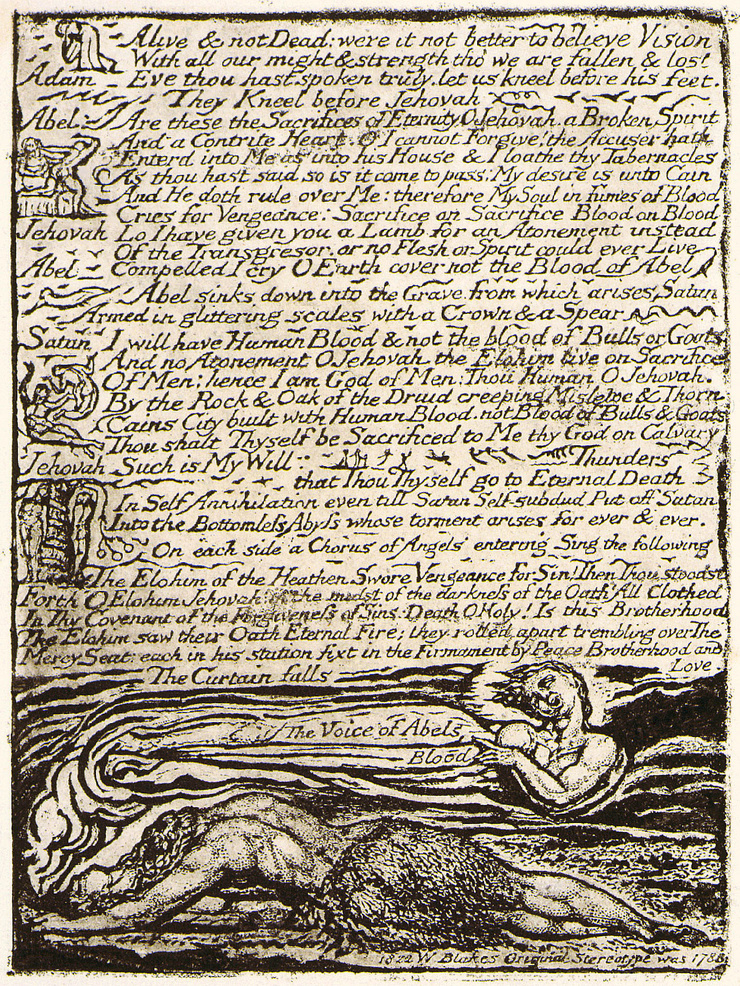 Alive & not Dead: were it not better to believe Vision
With all our might & strength tho we are fallen & lost
Adam Eve thou hast spoken truly. let us kneel before his feet.
They Kneel before Jehovah
Abel: Are these the Sacrifices of Eternity O Jehovah. a Broken Spirit
And a Contrite Heart. O I cannot Forgive! the Accuser hath
Enterd into Me as into his House & I loathe thy Tabernacles
As thou hast said, so is it come to pass: My desire is unto Cain
And He doth rule over Me: therefore My Soul in fumes of Blood
Cries for Vengeance: Sacrifice on Sacrifice Blood on Blood
Jehovah Lo I have given you a Lamb for an Atonement instead
Of the Transgresor. or no Flesh or Spirit could ever Live
Abel Compelled I cry O Earth cover not the Blood of Abel
Abel sinks down into the Grave. from which arises Satan
Armed in glittering scales with a Crown & a Spear
Satan I will have Human Blood & not the blood of Bulls or Goats
And no Atonement O Jehovah the Elohim live on Sacrifice
Of Men: hence I am God of Men: Thou Human O Jehovah.
By the Rock & Oak of the Druid creeping Misletoe & Thorn
Cains City built with Human Blood. not Blood of Bulls & Goats
Thou shalt Thyself be Sacrificed to Me thy God on Calvary
Jehovah Such is My Will: Thunders
that Thou Thyself go to Eternal Death
In Self Annihilation even till Satan Self-subdud Put off Satan
Into the Bottomless Abyss whose torment arises for ever & ever.
On each side a Chorus of Angels entering Sing the following
The Elohim of the Heathen Swore Vengeance for Sin! Then Thou stoodst
Forth O Elohim Jehovah! in the midst of the darkness of the Oath! All Clothed
In Thy Covenant of the Forgiveness of Sins: Death O Holy! Is this Brotherhood
The Elohim saw their Oath Eternal Fire; they rolled apart trembling over The
Mercy Seat: each in his station fixt in the Firmament by Peace Brotherhood and
Love
The Curtain falls
The Voice of Abels
Blood
1822 W Blakes Original Stereotype was 1788